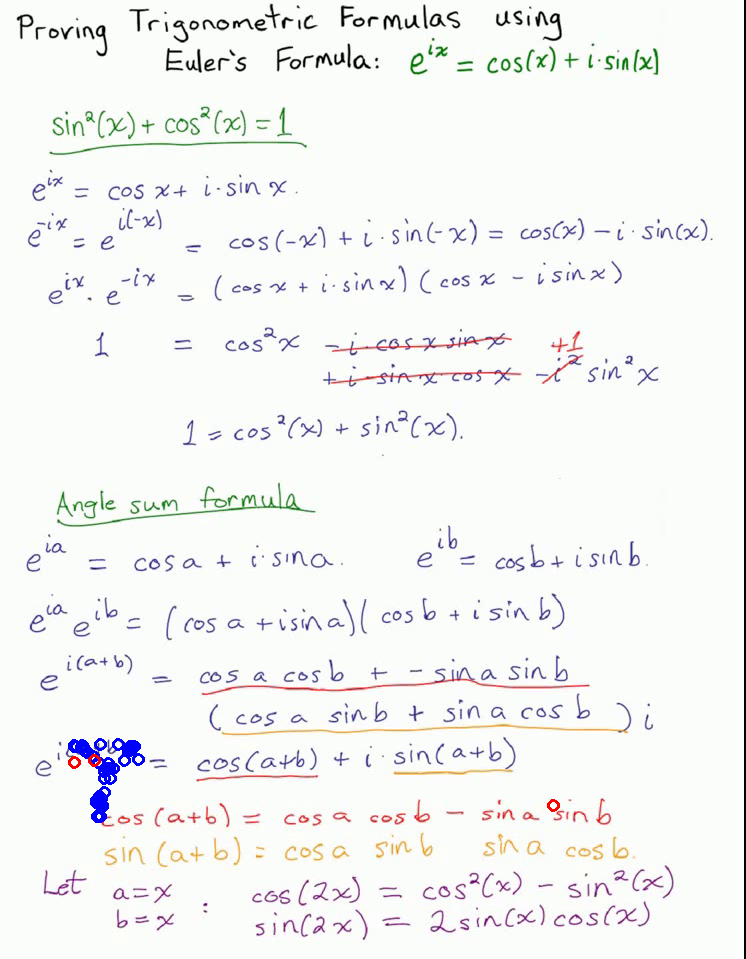 Proving Trigonometric Formulas using
Euler's Formula: e^{ix} = cos(x) + i·sin(x)
sin²(x) + cos²(x) = 1
e^{ix} = cos x + i·sin x.
e^{-ix} = e^{i(-x)} = cos(-x) + i·sin(-x) = cos(x) - i·sin(x).
e^{ix}·e^{-ix} = (cos x + i·sin x)(cos x - i sin x)
1 = cos²x - i·cos x sin x +1
+ i·sin x cos x - i² sin²x
1 = cos²(x) + sin²(x).
Angle sum formula
e^{ia} = cos a + i·sin a. e^{ib} = cos b + i sin b.
e^{ia} e^{ib} = (cos a + i sin a)(cos b + i sin b)
e^{i(a+b)} = cos a cos b + - sin a sin b
(cos a sin b + sin a cos b) i
e^{i = cos(a+b) + i·sin(a+b)
cos(a+b) = cos a cos b - sin a sin b
sin(a+b) = cos a sin b sin a cos b.
Let a=x : cos(2x) = cos²(x) - sin²(x)
b=x sin(2x) = 2sin(x)cos(x)